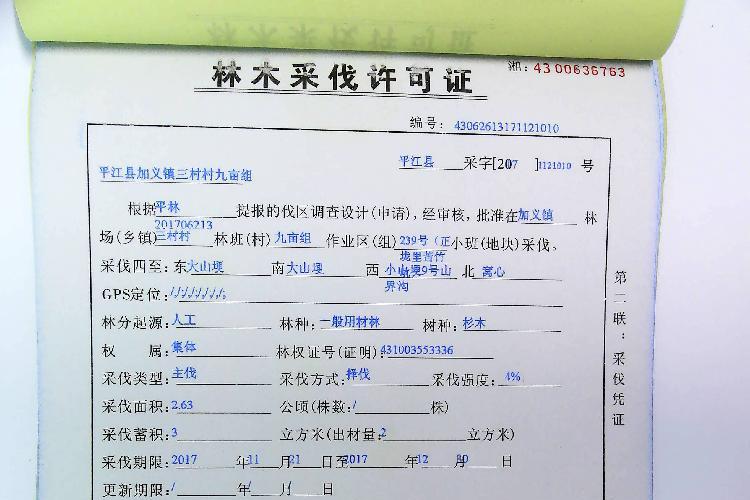 湘：4300636763
林木采伐许可证
编号：43062613171121010
平江县 采字[2017]1121010号
平江县加义镇三村村九亩组
根据平林201706213提报的伐区调查设计(申请)，经审核，批准在加义镇林
场(乡镇)三村村林班(村)九亩组作业区(组)239号（正垅里苦竹小班(地块)采伐。
采伐四至：东大山坝 南大山坝 西小山 9号山界沟 北窝心
GPS定位：/././././././.
林分起源：人工 林种：一般用材林 树种：杉木
权 属：集体 林权证号(证明)：431003553336
采伐类型：主伐 采伐方式：择伐 采伐强度：4%
采伐面积：2.63 公顷(株数：/ 株)
采伐蓄积：3 立方米(出材量：2 立方米)
采伐期限：2017年11月21日至2017年12月30日
更新期限：/ 年/ 月/ 日
第二联：采伐凭证